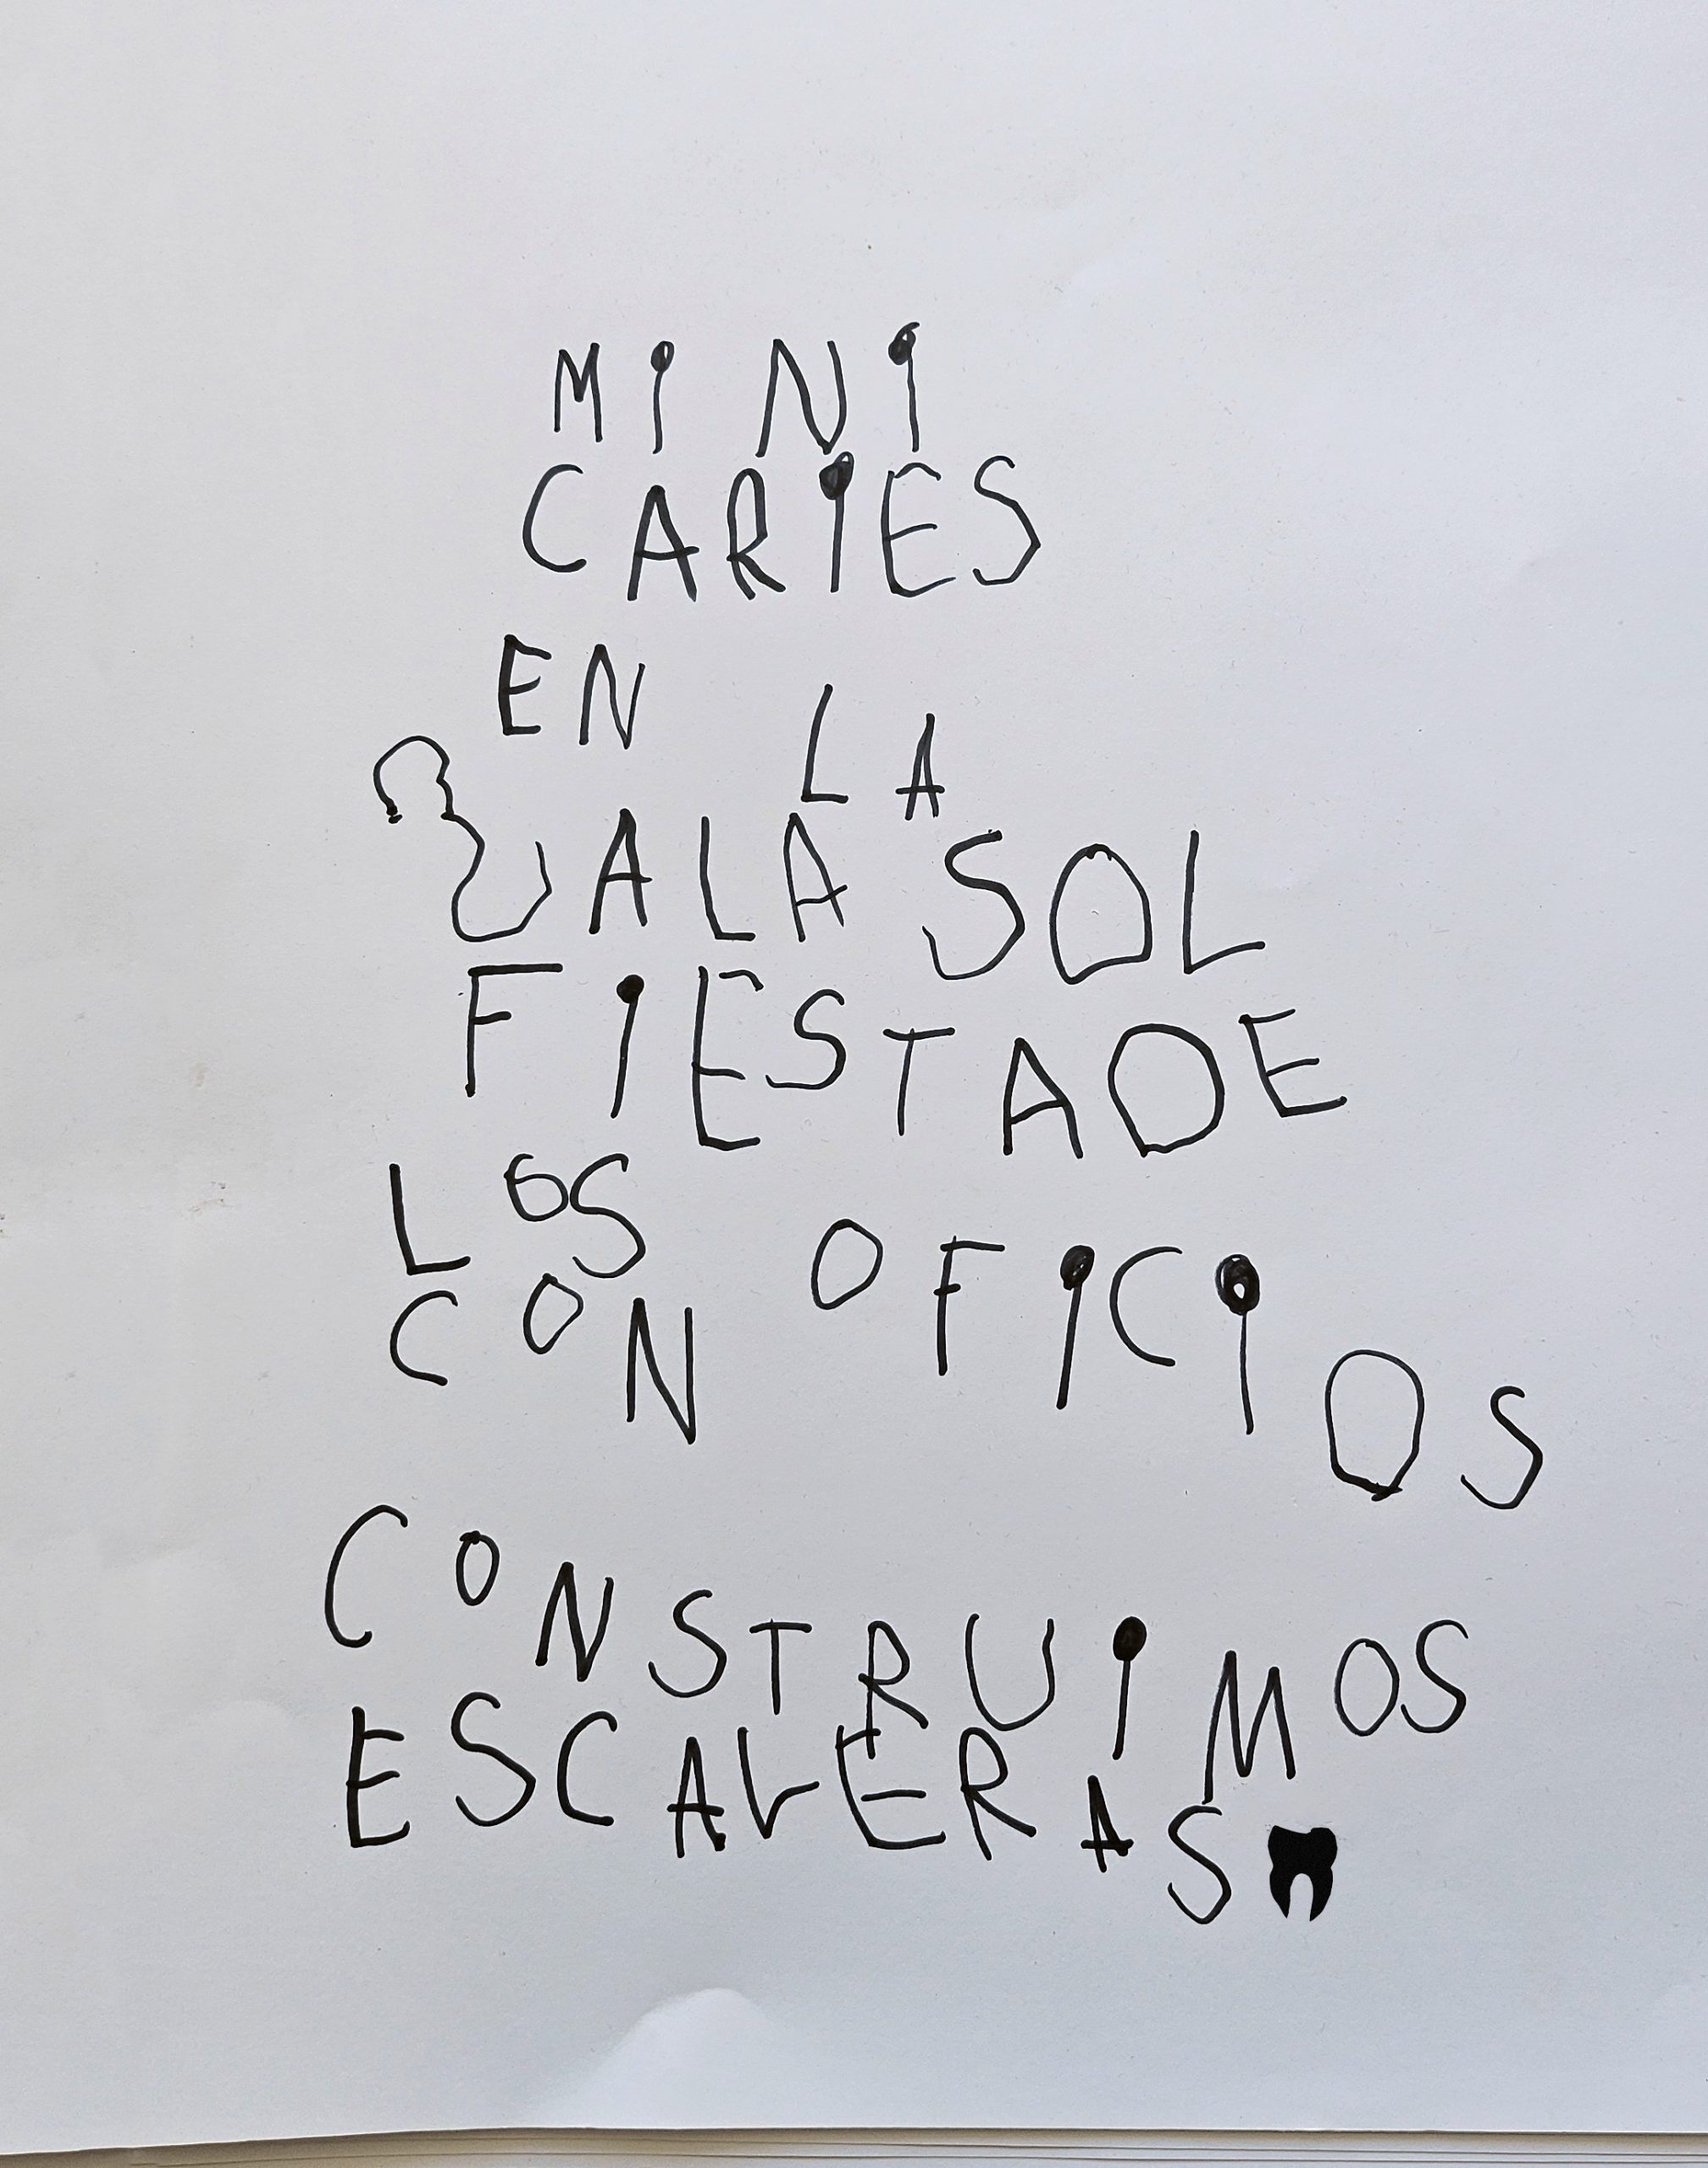 MiNi
CARiES
EN LA
JALA SOL
FiESTA DE
LOS
CON OFiCiOS
CONSTRUiMOS
ESCALERAS